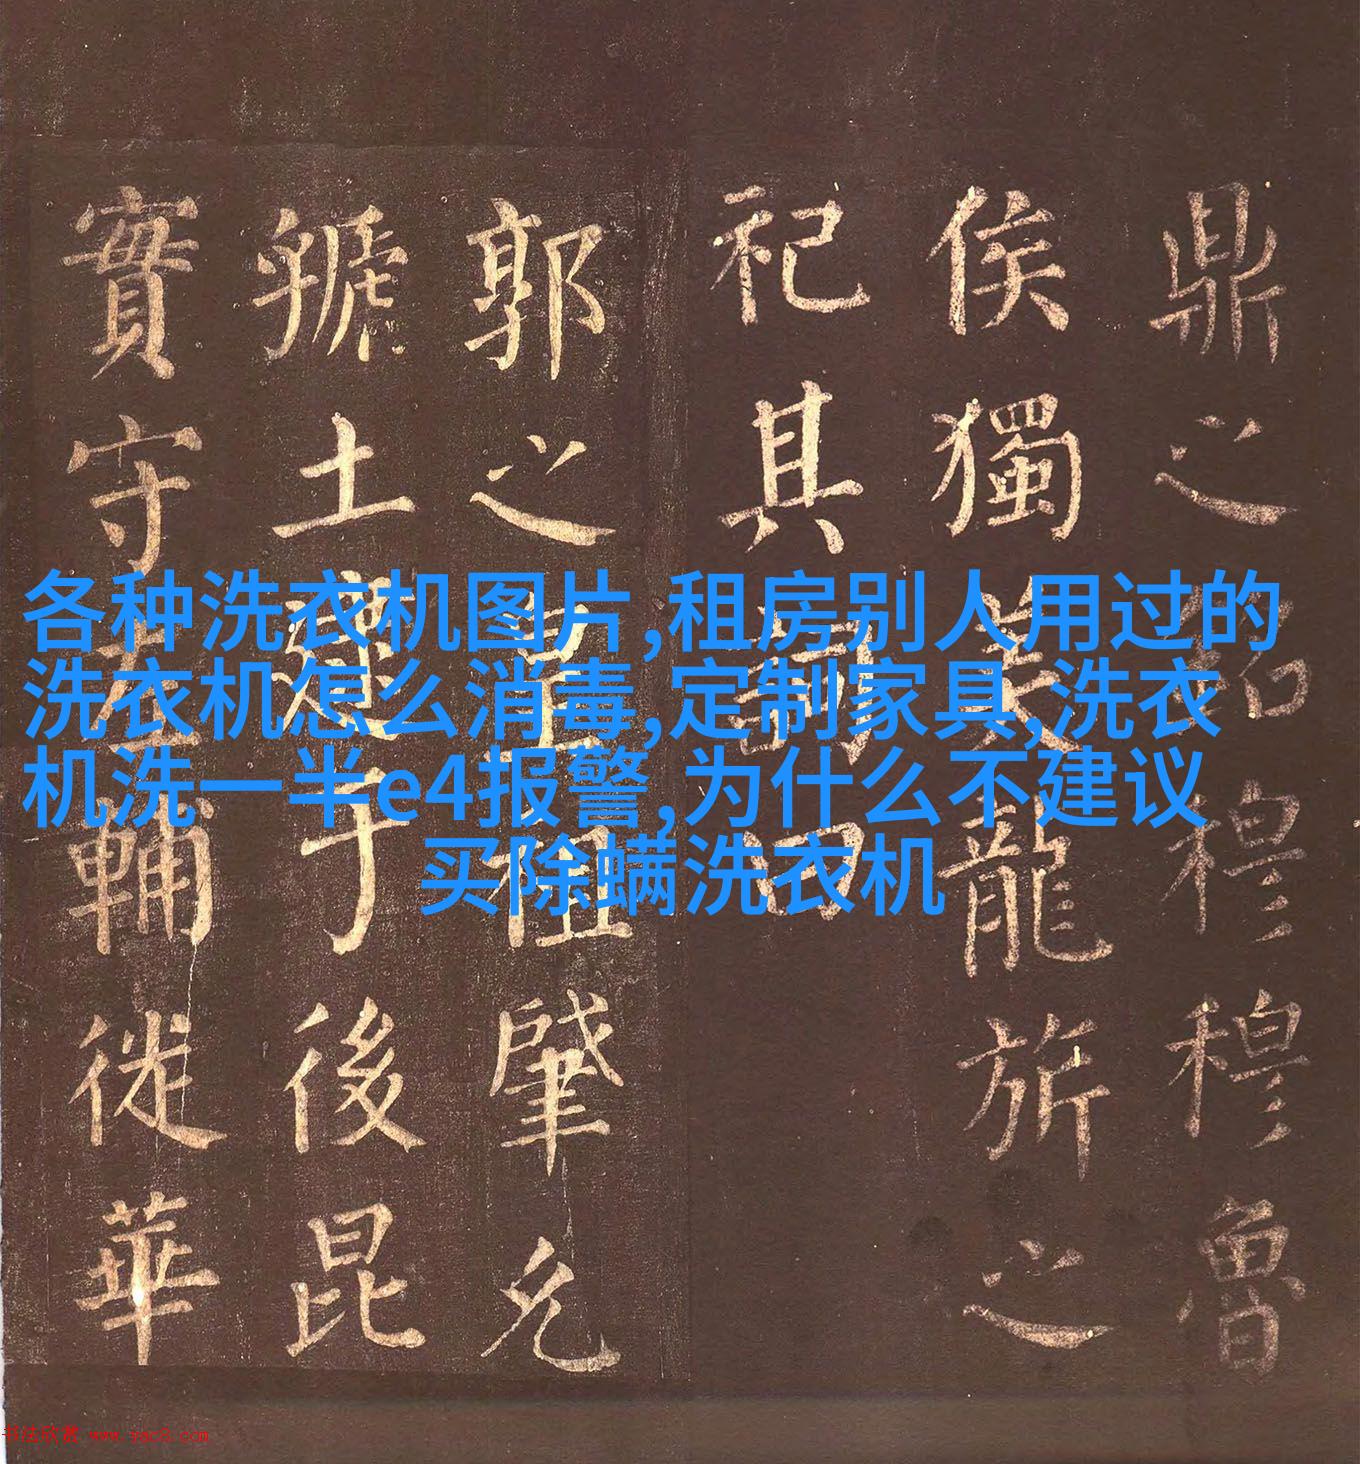 鼎之銘穆穆魯
侯獨美龍旂之
祀其詞曰
郭之皇祖肇允
虢土建于後昆
實守左輔徙華
各种洗衣机图片,租房别人用过的
洗衣机怎么消毒,定制家具,洗衣
机洗一半e4报警,为什么不建议
买除螨洗衣机
书法欣赏 www.yac8.com